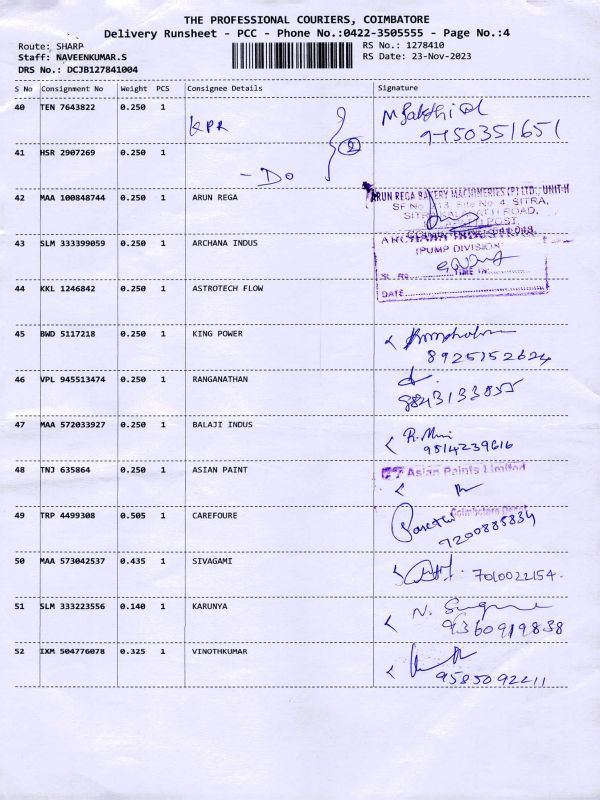 THE PROFESSIONAL COURIERS, COIMBATORE
Delivery Runsheet - PCC - Phone No.:0422-3505555 - Page No.:4
Route: SHARP
Staff: NAVEENKUMAR.S
DRS No.: DCJB127841004
RS No.: 1278410
RS Date: 23-Nov-2023
S No Consignment No Weight PCS Consignee Details Signature
40 TEN 7643822 0.250 1 KPR
9150351651
41 HSR 2907269 0.250 1 - Do
2
42 MAA 100848744 0.250 1 ARUN REGA
ARUN REGA BAKERY MACHINERIES (P) LTD., UNIT-II
SITRA,
43 SLM 333399059 0.250 1 ARCHANA INDUS
(PUMP DIVISION)
TIME IN
DATE
44 KKL 1246842 0.250 1 ASTROTECH FLOW
45 BWD 5117218 0.250 1 KING POWER
8925152624
46 VPL 945513474 0.250 1 RANGANATHAN
8843133855
47 MAA 572033927 0.250 1 BALAJI INDUS
9514239616
48 TNJ 635864 0.250 1 ASIAN PAINT
Asian Paints Limited
Coimbatore Depot
49 TRP 4499308 0.505 1 CAREFOURE
7200885834
50 MAA 573042537 0.435 1 SIVAGAMI
7010022154.
51 SLM 333223556 0.140 1 KARUNYA
9360919838
52 IXM 504776078 0.325 1 VINOTHKUMAR
9585092211